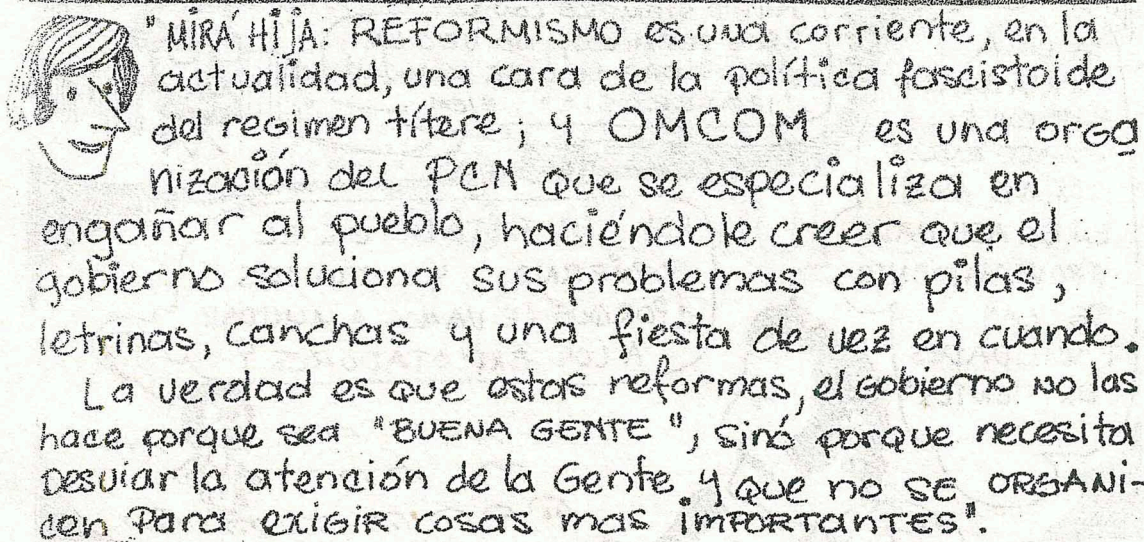 "MIRÁ HIJA: REFORMISMO es una corriente, en la
actualidad, una cara de la política fascistoide
del regimen títere; y OMCOM es una orga
nización del PCN que se especializa en
engañar al pueblo, haciéndole creer que el
gobierno soluciona sus problemas con pilas,
letrinas, canchas y una fiesta de vez en cuando.
La verdad es que estas reformas, el gobierno no las
hace porque sea "BUENA GENTE", sinó porque necesita
Desviar la atención de la Gente y que no SE ORGANI-
cen Para exigir cosas mas importantes".